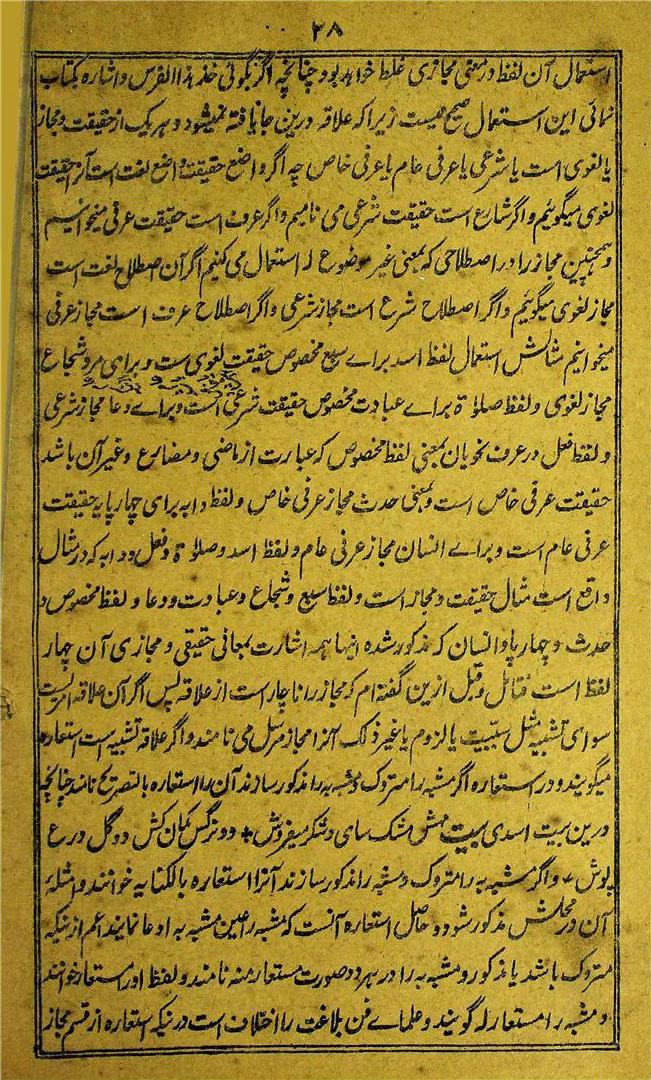 ۲۸
استعمال آن لفظ در معنی مجازی غلط خواهد بود چنانچه اگر بگوئی خذ هذا الفرس و اشاره بکتاب
نمائی این استعمال صحیح نیست زیرا که علاقه درین جا یافته نمیشود و هر یک از حقیقت و مجاز
یا لغوی است یا شرعی یا عرفی عام یا عرفی خاص چه اگر واضع حقیقت واضع لغت است آنرا حقیقت
لغوی میگوئیم و اگر شارع است حقیقت شرعی می نامیم و اگر عرف است حقیقت عرفی میخوانیم
و همچنین مجاز را در اصطلاحی که بمعنی غیر موضوع له استعمال می کنیم اگر آن اصطلاح لغت است
مجاز لغوی میگوئیم و اگر اصطلاح شرع است مجاز شرعی و اگر اصطلاح عرف است مجاز عرفی
میخوانیم مثالش استعمال لفظ اسد براے سبع مخصوص حقیقت لغوی ست و برای مرد شجاع
مجاز لغوی و لفظ صلوٰة براے عبادت مخصوص حقیقت شرعی است و براے دعا مجاز شرعی
و لفظ فعل در عرف نحویان بمعنی لفظ مخصوص که عبارت از ماضی و مضارع و غیر آن باشد
حقیقت عرفی خاص است و بمعنی حدث مجاز عرفی خاص و لفظ دابه برای چهارپایه حقیقت
عرفی عام است و براے انسان مجاز عرفی عام و لفظ اسد و صلوٰة و فعل و دابه که در مثال
واقع است مثال حقیقت و مجاز است و لفظ سبع و شجاع و عبادت و دعا و لفظ مخصوص و
حدث و چهارپا و انسان که مذکور شده اینها همه اشارت بمعانی حقیقی و مجازی آن چهار
لفظ است فتامل و قبل ازین گفته ام که مجاز را ناچار است از علاقه پس اگر آن علاقه امریست
سوای تشبیه مثل سببیت یا لزوم یا غیر ذلک آنرا مجاز مرسل می نامند و اگر علاقه تشبیه است استعاره
میگویند و در استعاره اگر مشبه را متروک و مشبه به را مذکور سازند آن را استعاره بالتصریح نامند چنانچه
درین بیت اسدی بیت مهش مشک سای و شکر میفروش + دو نرگس کمان کش دو گل درع
پوش + و اگر مشبه به را متروک و مشبه را مذکور سازند آنرا استعاره بالکنایه خوانند و امثلهٔ
آن در محلش مذکور شود و حاصل استعاره آنست که مشبه را عین مشبه به ادعا نمایند اعم از ینکه
متروک باشد یا مذکور و مشبه به را در هر دو صورت مستعار منه نامند و لفظ او را مستعار خوانند
و مشبه را مستعار له گویند و علماے فن بلاغت را اختلاف است درینکه استعاره از قسم مجاز